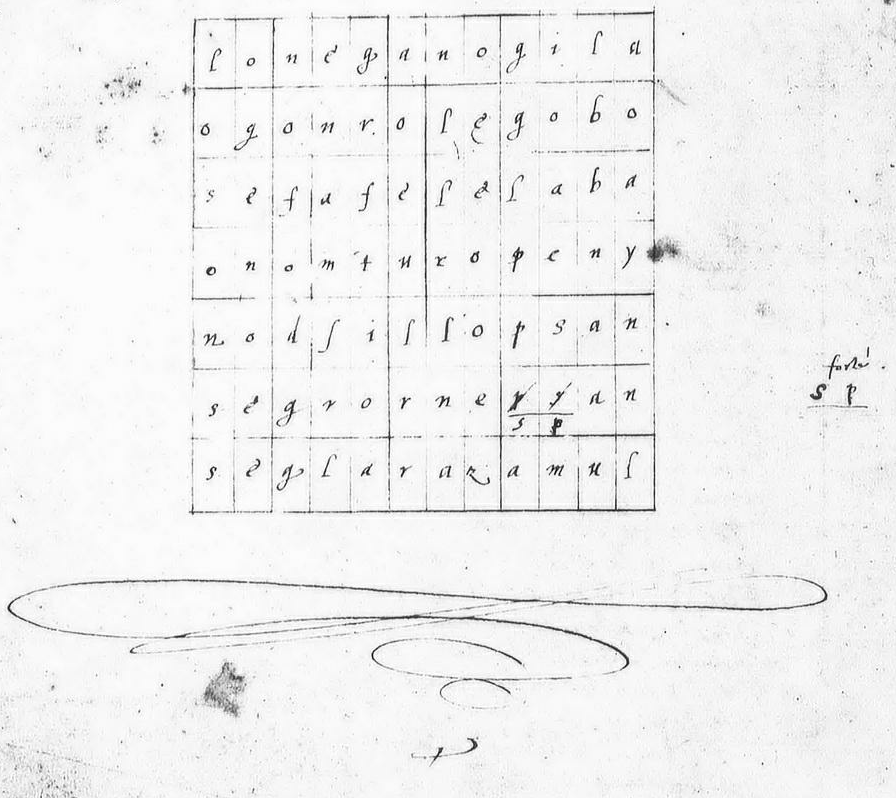 l o n e g a n o g i l d
o g o n r o l e g o b o
s e f a f e l e l a b a
o n o m t u r o p e n y
n o d s i l l o p s a n
s e g r o r n e a n
s p
s e g l a r a z a m u l
forte
s p